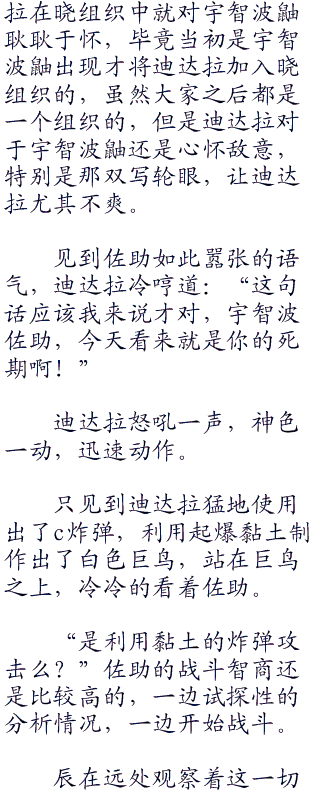 拉在晓组织中就对宇智波鼬
耿耿于怀，毕竟当初是宇智
波鼬出现才将迪达拉加入晓
组织的，虽然大家之后都是
一个组织的，但是迪达拉对
于宇智波鼬还是心怀敌意，
特别是那双写轮眼，让迪达
拉尤其不爽。
见到佐助如此嚣张的语
气，迪达拉冷哼道：“这句
话应该我来说才对，宇智波
佐助，今天看来就是你的死
期啊！”
迪达拉怒吼一声，神色
一动，迅速动作。
只见到迪达拉猛地使用
出了c炸弹，利用起爆黏土制
作出了白色巨鸟，站在巨鸟
之上，冷冷的看着佐助。
“是利用黏土的炸弹攻
击么？”佐助的战斗智商还
是比较高的，一边试探性的
分析情况，一边开始战斗。
辰在远处观察着这一切